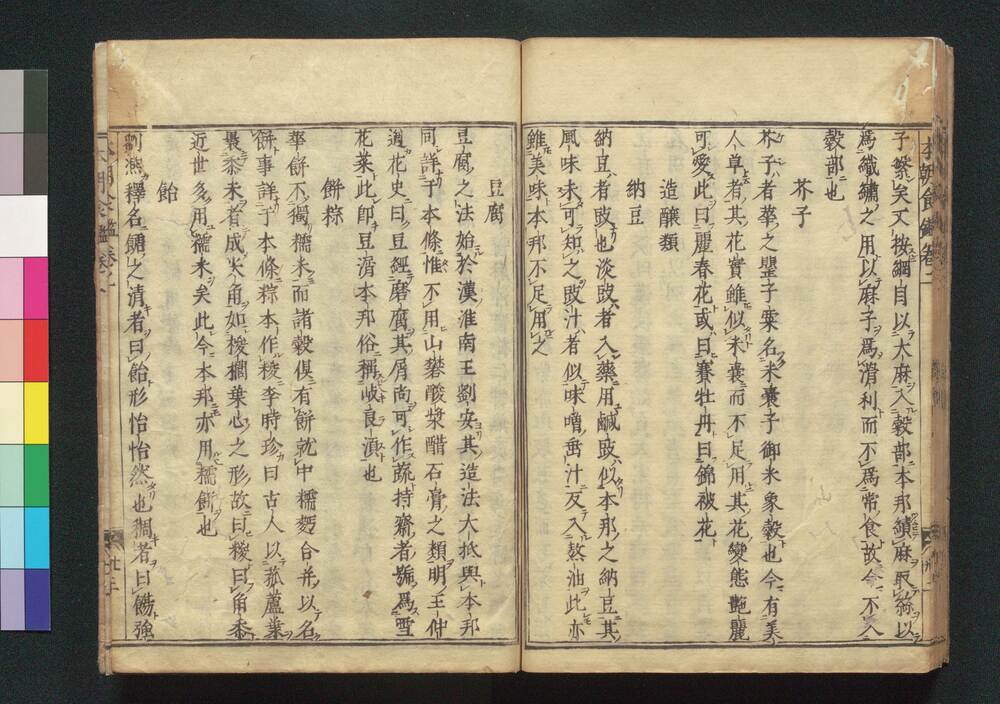 子祭矣又按綱目以大麻入穀部本邦績麻取絲以
爲織繡之用以麻子爲滑利而不爲常食故今不入
穀部也
芥子
芥子者華之罌子粟名米囊子御米象穀也今有美
人草者其花實雖似米囊而不足用其花變態艶麗
可愛此曰麗春花或曰賽牡丹曰錦被花
造釀類
納豆
納豆者豉也淡豉者入藥用鹹豉似本邦之納豆其
風味未可知之豉汁者似味噌垂汁又入熬油此亦
雖美味本邦不足用之
豆腐
豆腐之法始於漢淮南王劉安其造法大抵與本邦
同詳于本條惟不用山礬酸漿醋石膏之類明王仲
遵花史曰豆經磨腐其屑尚可作蔬持齋者號爲雪
花菜此即豆滓本邦俗稱岐良須也
餅粽
華餅不獨糯米而諸穀俱有餅就中糯麪合并以名
餅事詳于本條粽本作糉李時珍曰古人以菰蘆葉
裹黍米者成尖角如椶櫚葉心之形故曰糉曰角黍
近世多用糯米矣此今本邦亦用糯餅也
飴
劉熙釋名餹之清者曰飴形怡怡然也稠者曰餳強
本朝食鑑卷二